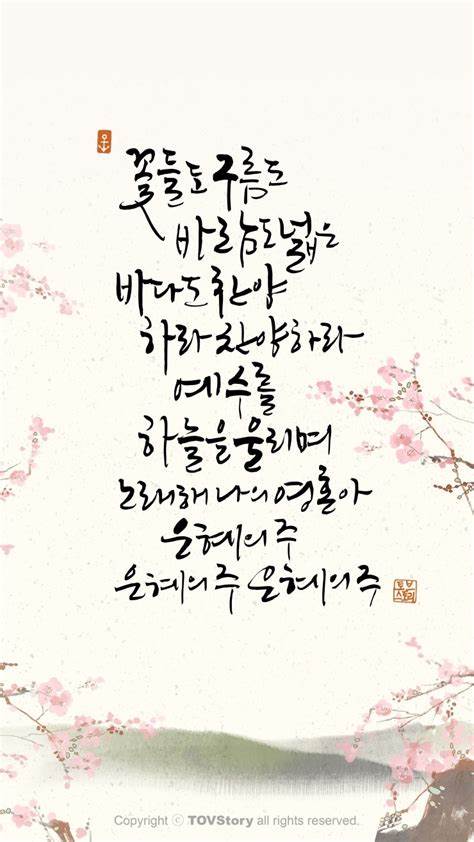 꽃들도 구름도
바람도 넓은
바다도 찬양
하라 찬양하라
예수를
하늘을 울리며
노래해 나의 영혼아
은혜의 주
은혜의 주 은혜의 주
토브
스토리
Copyright ⓒ TOVStory all rights reserved.